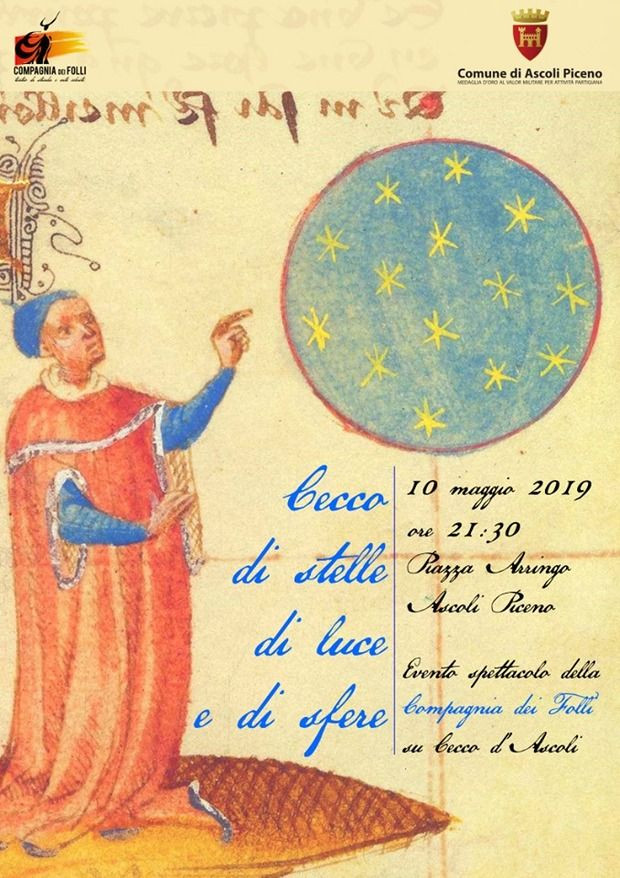 COMPAGNIA DEI FOLLI
teatro di strada e arti circensi
Comune di Ascoli Piceno
MEDAGLIA D'ORO AL VALOR MILITARE PER ATTIVITÀ PARTIGIANA
Cecco
di stelle
di luce
e di sfere
10 maggio 2019
ore 21:30
Piazza Arringo
Ascoli Piceno
Evento spettacolo della
Compagnia dei Folli
su Cecco d'Ascoli